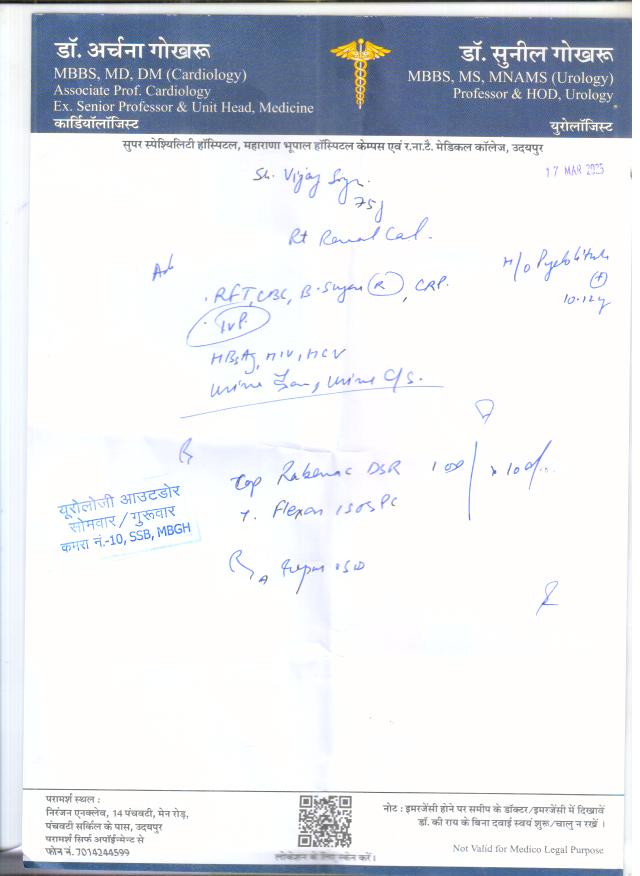 डॉ. अर्चना गोखरू
MBBS, MD, DM (Cardiology)
Associate Prof. Cardiology
Ex. Senior Professor & Unit Head, Medicine
कार्डियॉलॉजिस्ट
डॉ. सुनील गोखरू
MBBS, MS, MNAMS (Urology)
Professor & HOD, Urology
यूरोलॉजिस्ट
सुपर स्पेशियलिटी हॉस्पिटल, महाराणा भूपाल हॉस्पिटल केम्पस एवं र.ना.टै. मेडिकल कॉलेज, उदयपुर
17 MAR 2025
Sh. Vijay
75y
Rt Renal Cal.
H/O
(+)
Adv
. RFT, CBC, B. Sugar (R), CRP.
. IVP.
HBsAg, HIV, HCV
Urine , Urine C/S.
Rx
Cap DSR 1 OD
x 10 d
यूरोलोजी आउटडोर
सोमवार / गुरूवार
कमरा नं.-10, SSB, MBGH
परामर्श स्थल :
निरंजन एनक्लेव, 14 पंचवटी, मेन रोड़,
पंचवटी सर्किल के पास, उदयपुर
परामर्श सिर्फ अपॉईन्मेन्ट से
फोन नं. 7014244599
लोकेशन के लिए स्कैन करें।
नोट : इमरजेंसी होने पर समीप के डॉक्टर/इमरजेंसी में दिखावें
डॉ. की राय के बिना दवाई स्वयं शुरू/चालु न रखें ।
Not Valid for Medico Legal Purpose